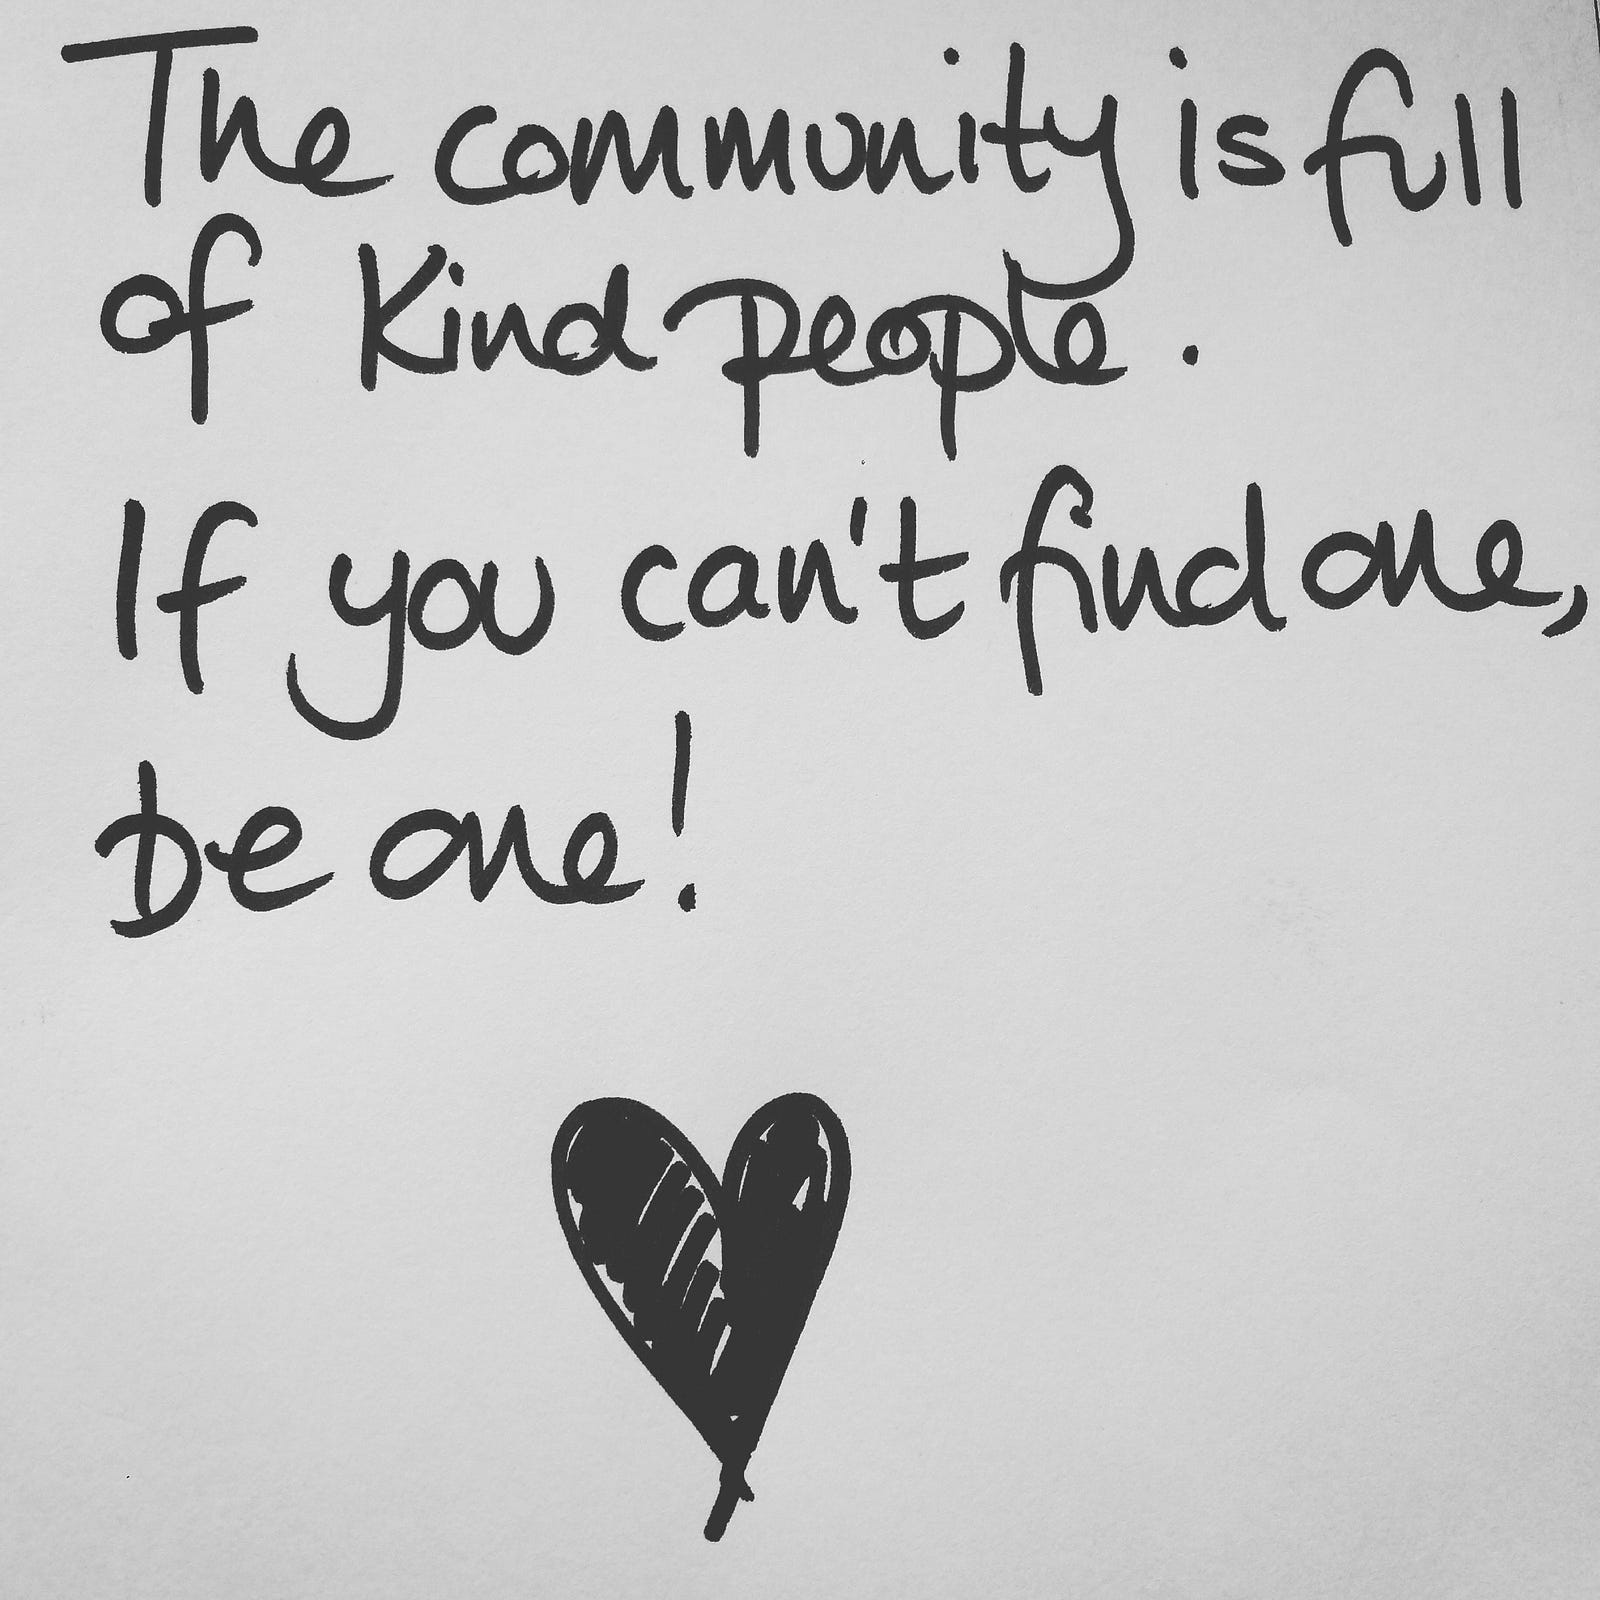 The community is full
of Kind people.
If you can't find one,
be one!